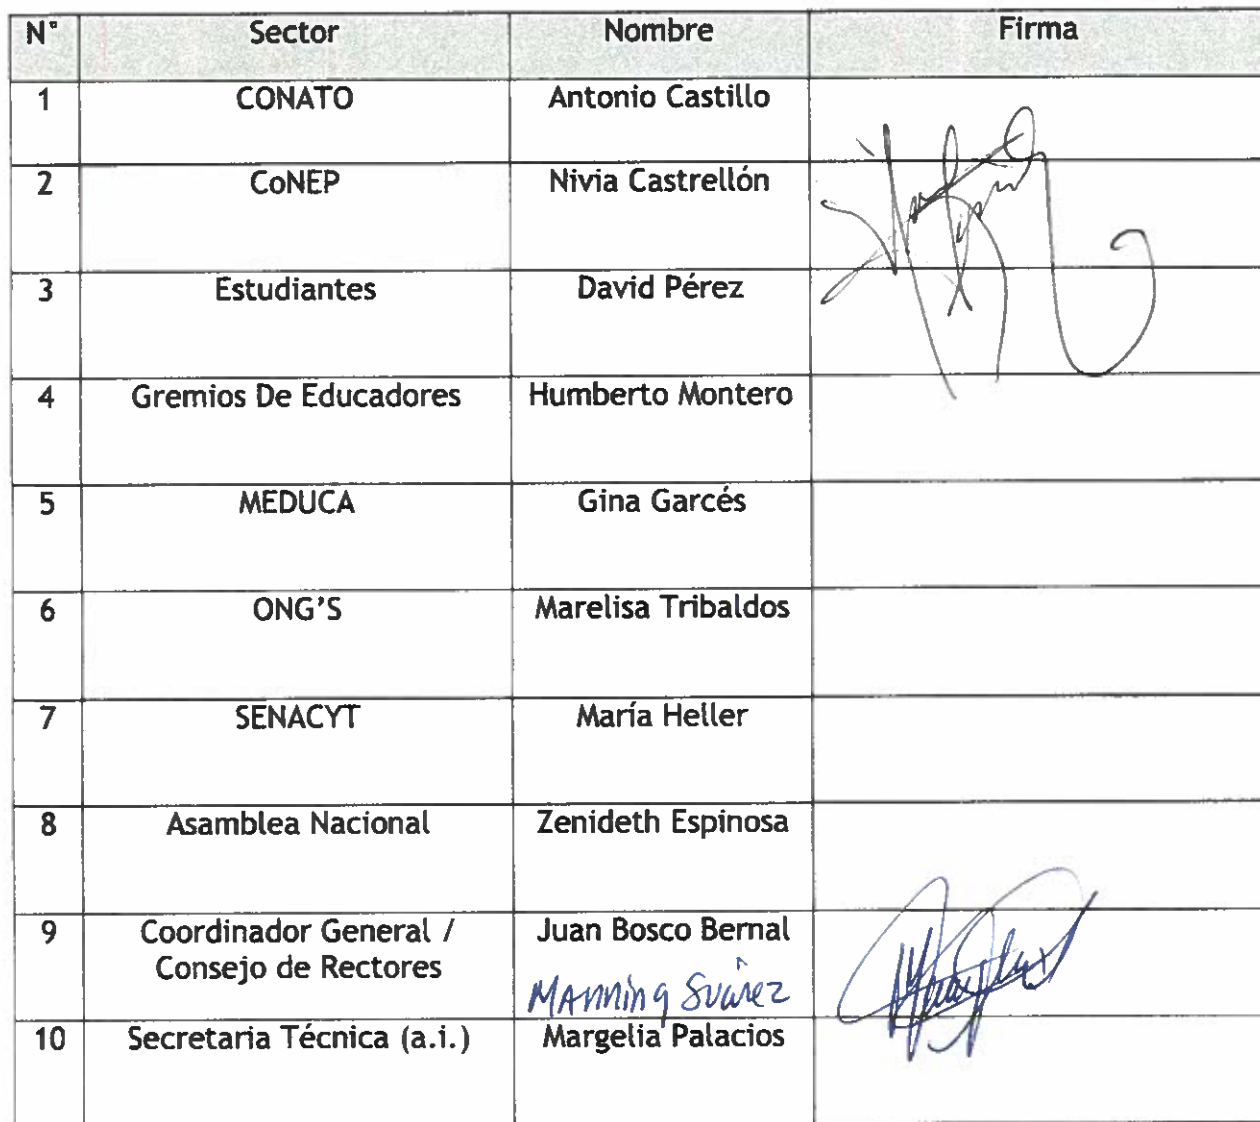 N° Sector Nombre Firma
1 CONATO Antonio Castillo
2 CoNEP Nivia Castrellón
3 Estudiantes David Pérez
4 Gremios De Educadores Humberto Montero
5 MEDUCA Gina Garcés
6 ONG'S Marelisa Tribaldos
7 SENACYT María Heller
8 Asamblea Nacional Zenideth Espinosa
9 Coordinador General / Juan Bosco Bernal
Consejo de Rectores
Manning Suárez
10 Secretaria Técnica (a.i.) Margelia Palacios